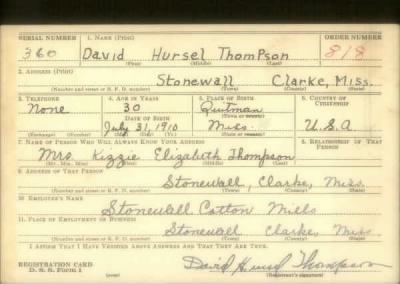 SERIAL NUMBER 1. NAME (Print) ORDER NUMBER
360 David Hursel Thompson 818
(First) (Middle) (Last)
2. ADDRESS (Print)
Stonewall Clarke, Miss.
(Number and street or R. F. D. number) (Town) (County) (State)
3. TELEPHONE 4. AGE IN YEARS 5. PLACE OF BIRTH 6. COUNTRY OF CITIZENSHIP
None 30 Quitman
DATE OF BIRTH (Town or county)
July 31, 1910 Miss. U.S.A
(Exchange) (Number) (Mo.) (Day) (Yr.) (State or country)
7. NAME OF PERSON WHO WILL ALWAYS KNOW YOUR ADDRESS 8. RELATIONSHIP OF THAT PERSON
Mrs. Kizzie Elizabeth Thompson
(Mr., Mrs., Miss) (First) (Middle) (Last)
9. ADDRESS OF THAT PERSON
Stonewall, Clarke, Miss.
(Number and street or R. F. D. number) (Town) (County) (State)
10. EMPLOYER'S NAME
Stonewall Cotton Mills
11. PLACE OF EMPLOYMENT OR BUSINESS
Stonewall, Clarke, Miss.
(Number and street or R. F. D. number) (Town) (County) (State)
I AFFIRM THAT I HAVE VERIFIED ABOVE ANSWERS AND THAT THEY ARE TRUE.
REGISTRATION CARD David Hursel Thompson
D. S. S. Form 1 (over) (Registrant's signature)